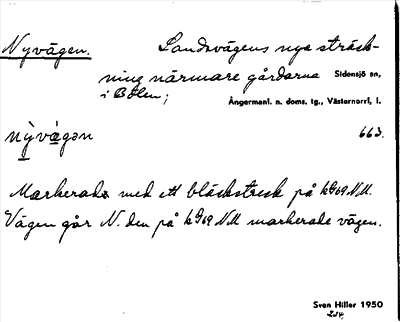 Nyvägen. Landsvägens nya sträck-
ning närmare gårdarna Sidensjö sn,
i Bölen; Ångermanl. n. doms. tg., Västernorrl. l.
nỳvägən 663.
Markerade med ett bläckstreck på kG69 NU.
Vägen går N. den på kG69 NU markerade vägen.
Sven Hiller 1950